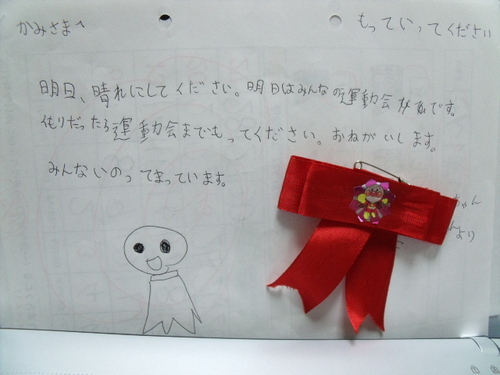 かみさまへ
もっていってください
明日、晴れにしてください。明日はみんなの運動会があるです。
くもりだったら運動会までもってください。おねがいします。
みんないのってまっています。
ゃん
より